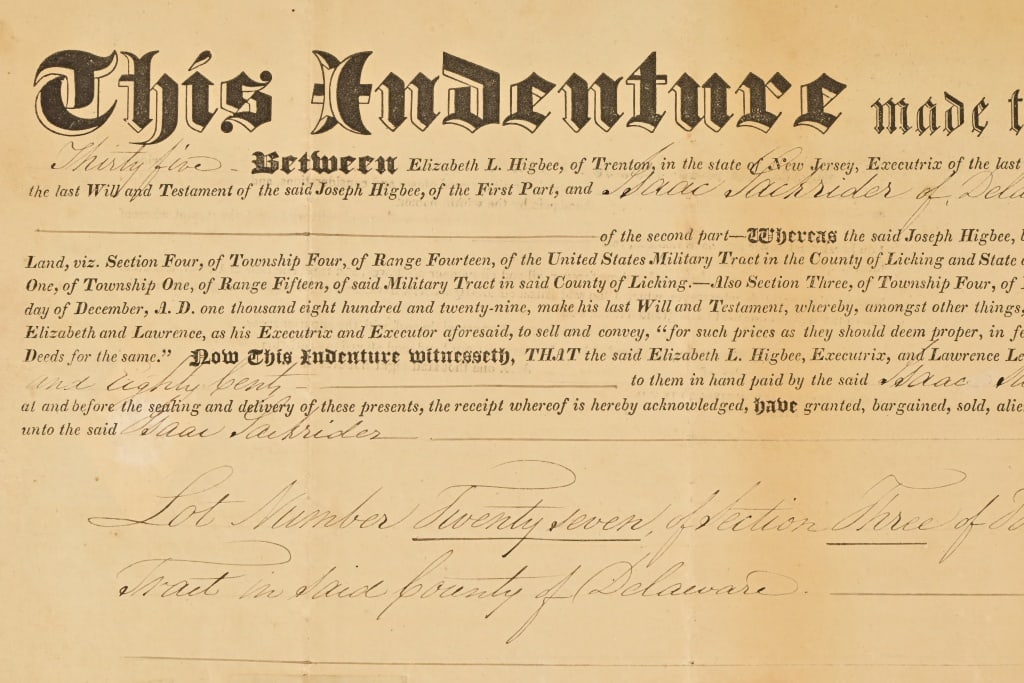 This Indenture made t
Thirty five - Between Elizabeth L. Higbee, of Trenton, in the state of New Jersey, Executrix of the last
the last Will and Testament of the said Joseph Higbee, of the First Part, and Isaac Sackrider of Dela
of the second part—Whereas the said Joseph Higbee, b
Land, viz. Section Four, of Township Four, of Range Fourteen, of the United States Military Tract in the County of Licking and State o
One, of Township One, of Range Fifteen, of said Military Tract in said County of Licking.—Also Section Three, of Township Four, of
day of December, A. D. one thousand eight hundred and twenty-nine, make his last Will and Testament, whereby, amongst other things,
Elizabeth and Lawrence, as his Executrix and Executor aforesaid, to sell and convey, “for such prices as they should deem proper, in fe
Deeds for the same.” Now This Indenture witnesseth, THAT the said Elizabeth L. Higbee, Executrix, and Lawrence Le
and Eighty Cents to them in hand paid by the said Isaac Sa
at and before the sealing and delivery of these presents, the receipt whereof is hereby acknowledged, have granted, bargained, sold, alie
unto the said Isaac Sackrider
Lot Number Twenty seven, of Section Three of To
Tract in said County of Delaware.